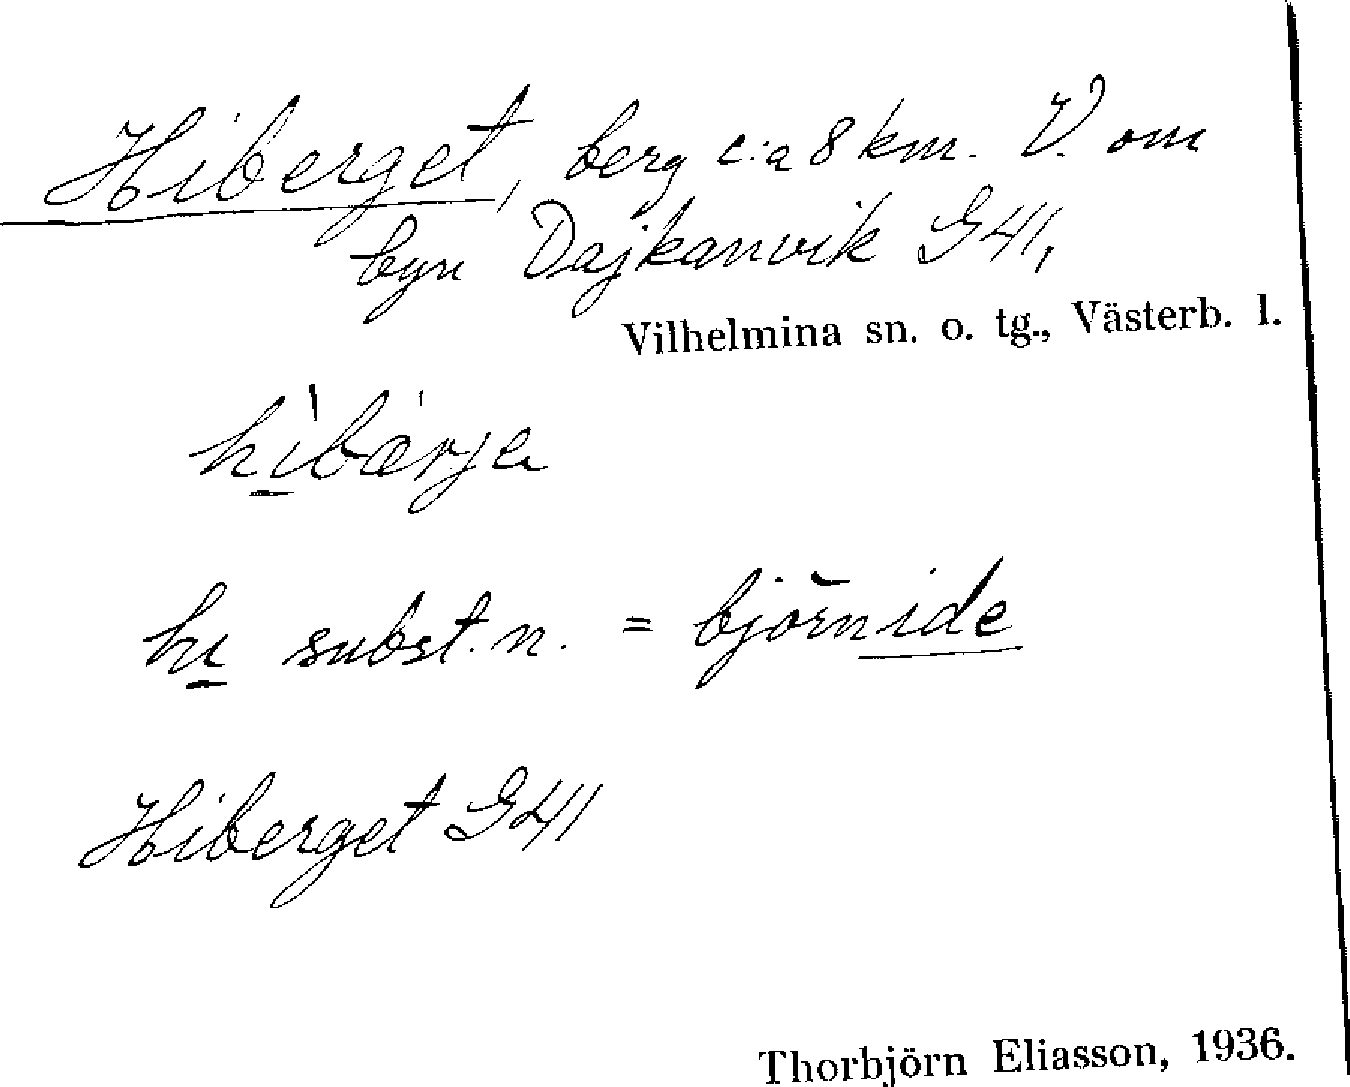 Hiberget, berg c:a 8 km. V. om
byn Dajkanvik G41,
Vilhelmina sn. o. tg., Västerb. l.
hi subst. n. = björnide
Hiberget G41
Thorbjörn Eliasson, 1936.